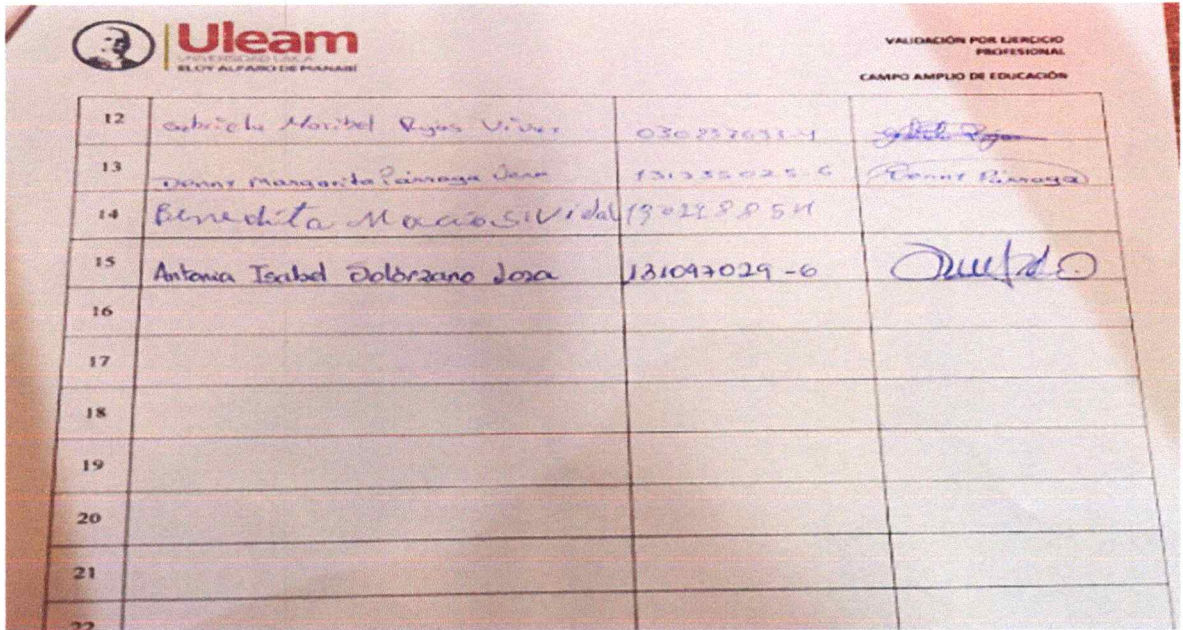 Uleam
UNIVERSIDAD LAICA
ELOY ALFARO DE MANABÍ
VALIDACIÓN POR EJERCICIO
PROFESIONAL
CAMPO AMPLIO DE EDUCACIÓN
12 Gabriela Maribel Rojas
13 Denny Margarita Párraga 131335025-6 Denny Párraga
14 Benedita Vidal
15 Antonia Isabel Solórzano Loza 131097029-6
16
17
18
19
20
21
22